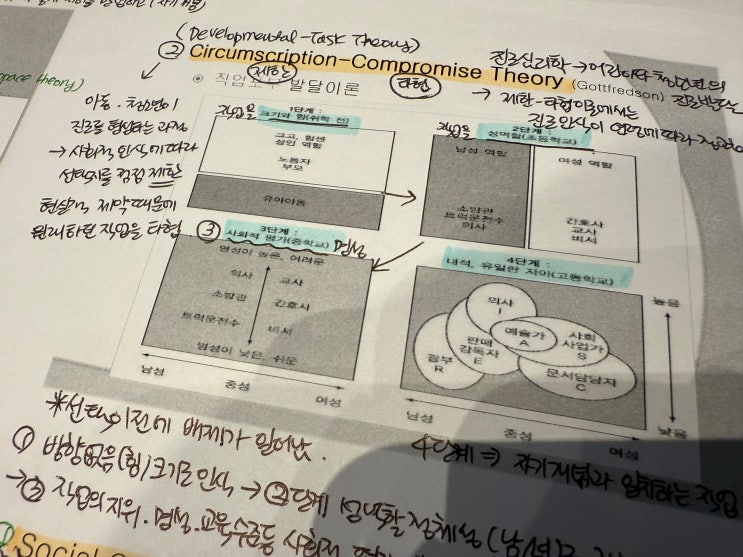 (Developmental-Task Theory)
② Circumscription-Compromise Theory (Gottfredson)
pace theory)
제한
타협
직업포부 발달이론
진로심리학 → 어린이와 청소년의
진로발달
→ 제한-타협이론에서는
진로인식이 연령에 따라
아동·청소년이
진로를 형성하는 과정
→ 사회적 인식에 따라
선택지를 점점 제한
현실적 제약때문에
원래 하려던 직업을 타협
직업을
1단계 :
크기와 힘(취학 전)
크고, 힘센
성인 역할
노동자
부모
유아아동
직업을
2단계 :
성역할(초등학교)
남성 역할
여성 역할
소방관
트럭운전수
의사
간호사
교사
비서
③
3단계 :
사회적 평가(중학교)
명성
명성이 높은, 어려운
의사
교사
소방관
간호사
트럭운전수
비서
명성이 낮은, 쉬운
남성
중성
여성
4단계 :
내적, 유일한 자아(고등학교)
의사
I
예술가
A
사회
사업가
S
판매
감독자
E
광부
R
문서담당자
C
높음
낮음
남성
중성
여성
*선택이전에 배제가 일어남.
4단계 ⇒ 자기개념과 일치하는 직업
① 방향없음(힘)크기로 인식 → ②단계 성역할 정체성 (남성은
→ ③ 직업의 지위·명성·교육수준등 사회적
Social